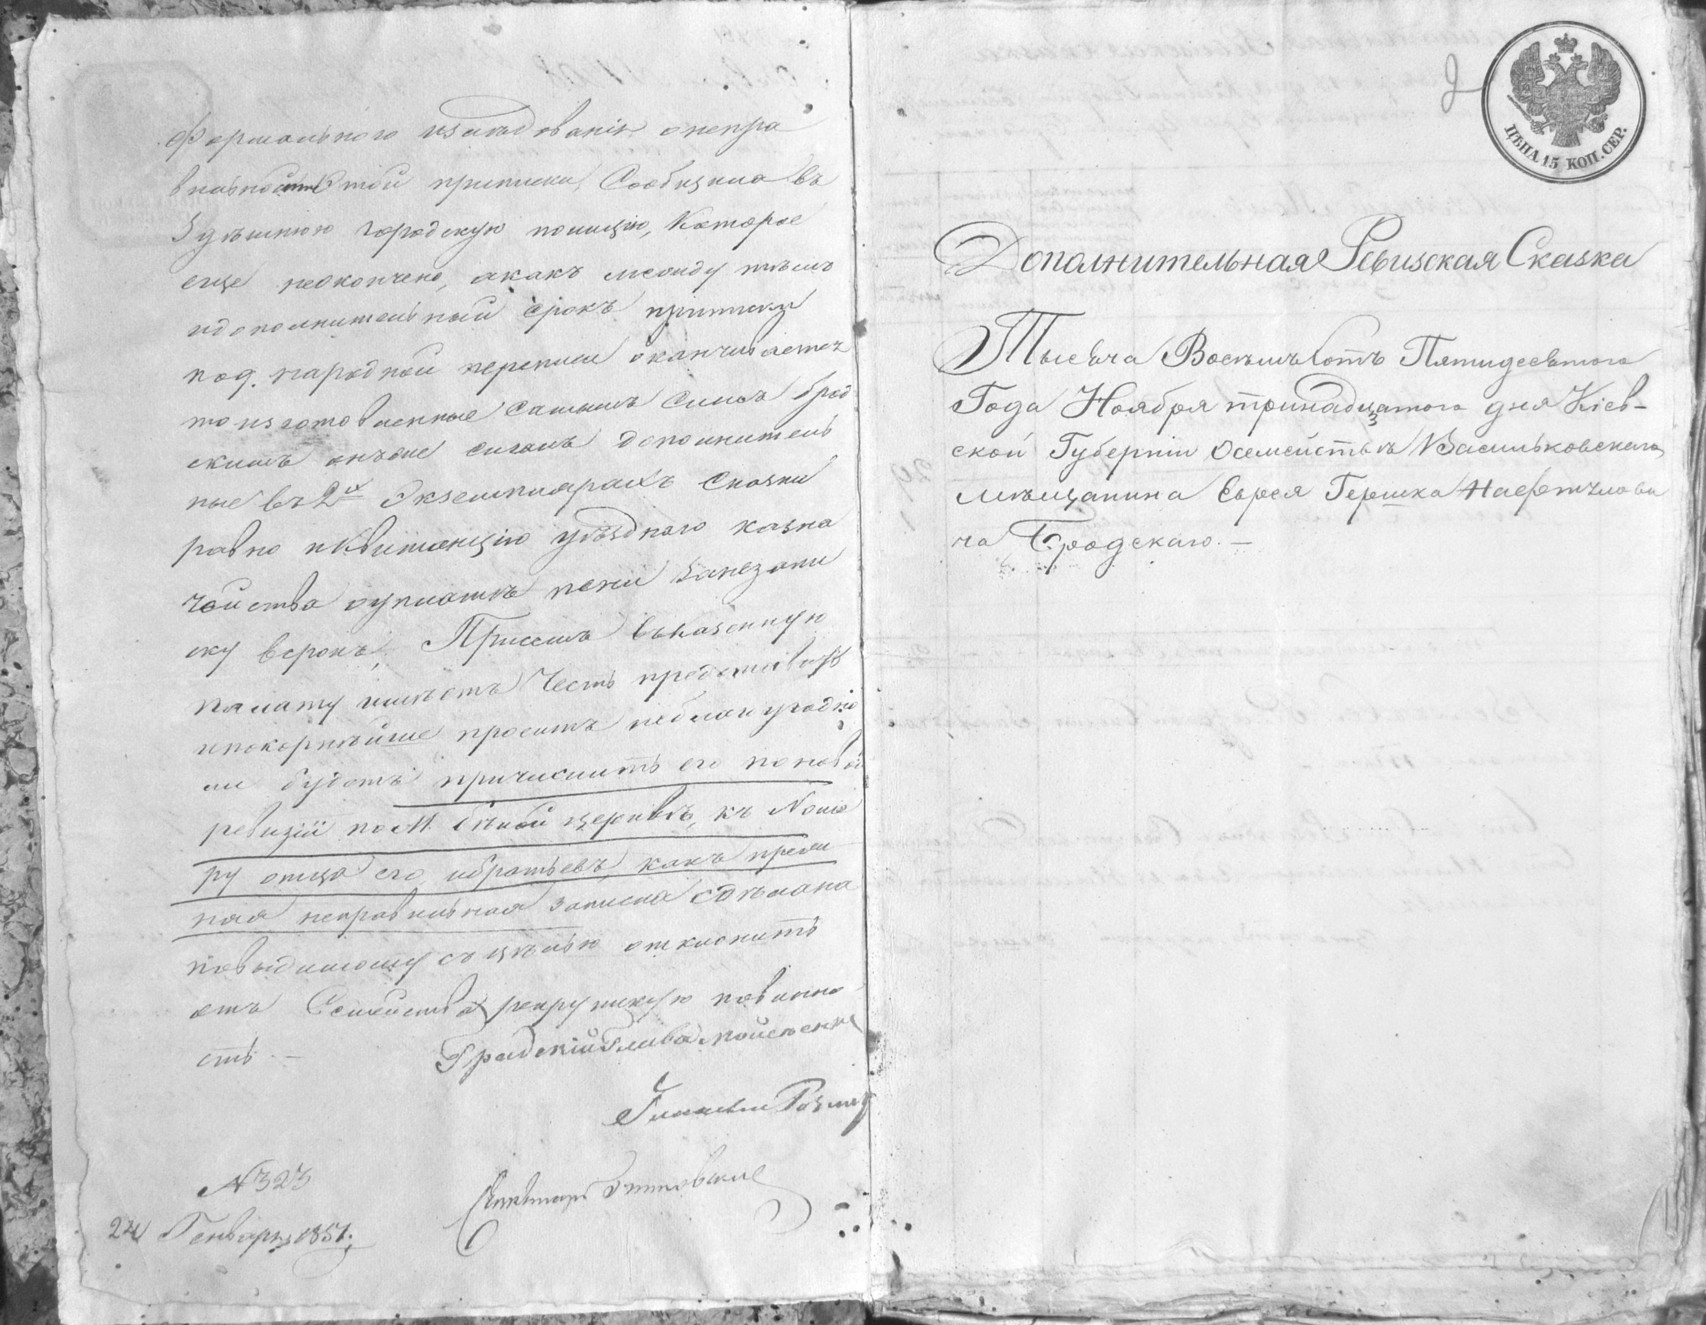 формального изследованія о непра
вильности этой приписки, Сообщила въ
Здѣшнюю городскую полицію, Которое
еще неокончено, а какъ между тѣмъ
идополнительный срокъ приписки
под. народной переписи оканчивается
то изготовленные самымъ симъ Брод
скимъ онъ же сигалъ дополнитель
ные въ 2хъ Экземплярахъ Сказки
равно и Квитанцію уѣзднаго казна
чейства о уплатѣ пени за незапи
ску въ срокъ, При семъ въ казенную
палату имѣетъ Честь представить
ипокорнѣйше проситъ неблагоугодно
ли будетъ причислить его по новой
ревизіи по М. Бѣлой церквѣ, къ Номе
ру отца его, ибратьевъ, какъ преж
няя неправильная записка сдѣлана
повидимому съ цѣлью отклонить
отъ Семейства рекрутскую повинно
сть. —
Градскій Глава Мойсеенко
Гласный
№ 323
24 Генваря 1851.
Секретарь
2
ЦѢНА 15 КОП. СЕР.
Дополнительная Ревизская Сказка
Тысяча Восемьсотъ Пятидесятого
Года Ноября тринадцатого дня Кіев-
ской Губерніи о семействѣ Васильковскаго
мѣщанина Еврея Гершка Нафтулови
ча Бродскаго. —